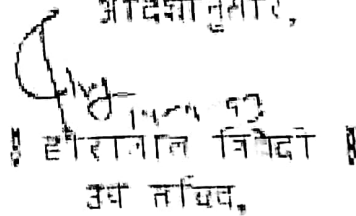 आदेशानुसार,
॥ हीरालाल त्रिवेदी ॥
उप सचिव,